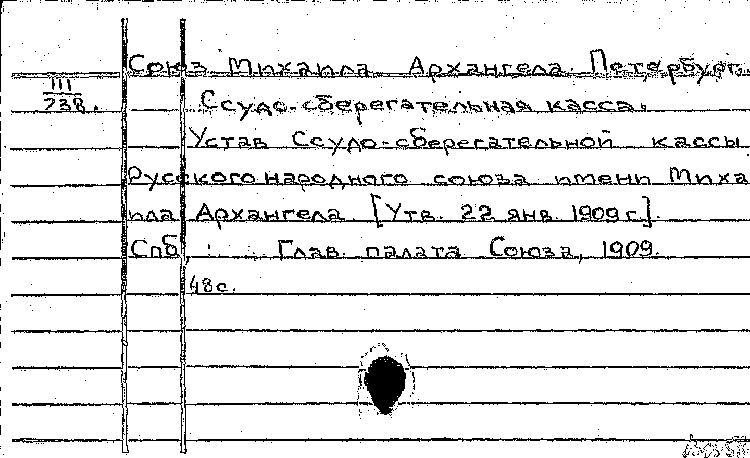 Союз Михаила Архангела. Петербург.
III
238.
Ссудо-сберегательная касса.
Устав Ссудо-сберегательной кассы
Русского народного союза имени Миха
ила Архангела. [Утв. 22 янв. 1909 г.].
Спб, Глав. палата Союза, 1909.
48с.